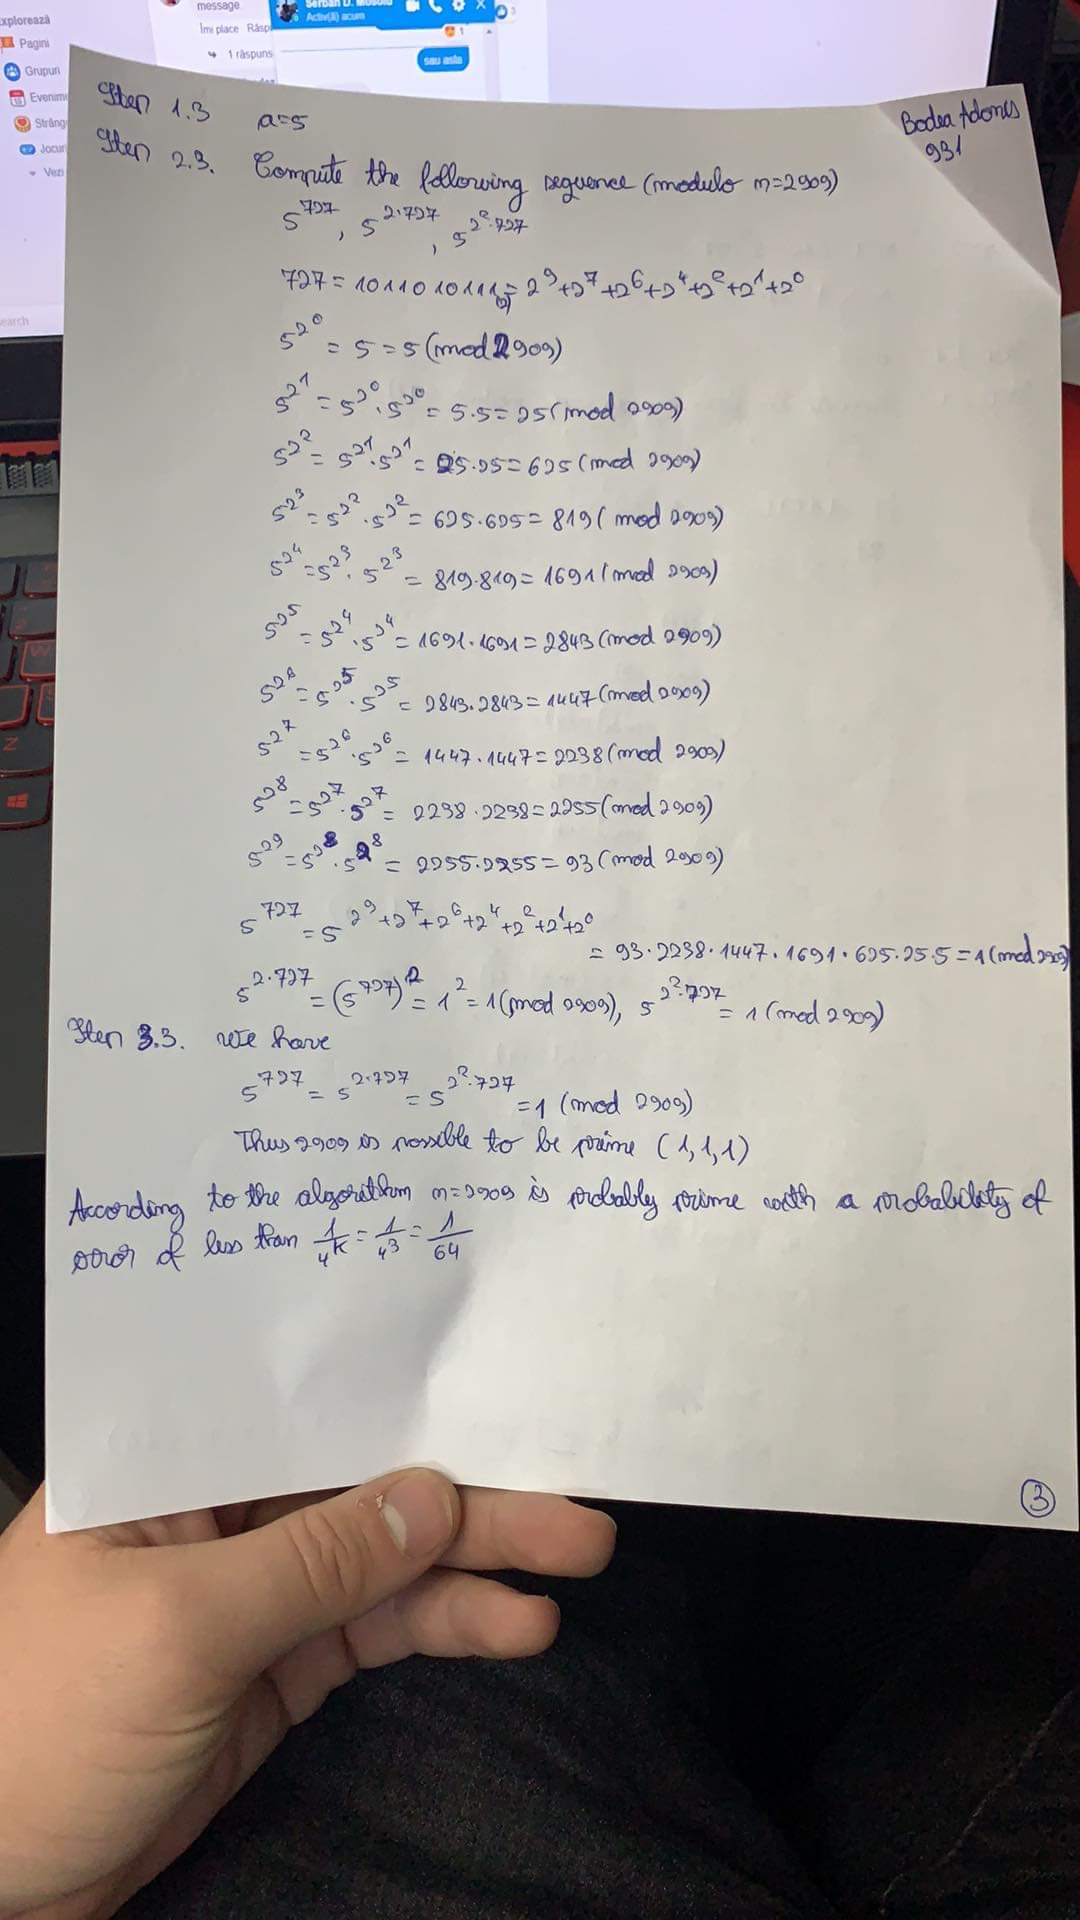 xplorează
Pagini
Grupuri
Evenim
Strâng
Jocuri
Vezi
earch
message
Îmi place Răsp
1 răspuns
Serban D.
Activ(ă) acum
1
sau asta
3
Bodea Adonis
931
Step 1.3 a=5
Step 2.3. Compute the following sequence (modulo n=2909)
5^727, 5^2·727, 5^2^2·727
727 = 1011010111(2) = 2^9+2^7+2^6+2^4+2^2+2^1+2^0
5^2^0 = 5 = 5 (mod 2909)
5^2^1 = 5^2^0 · 5^2^0 = 5·5 = 25 (mod 2909)
5^2^2 = 5^2^1 · 5^2^1 = 25·25 = 625 (mod 2909)
5^2^3 = 5^2^2 · 5^2^2 = 625·625 = 819 (mod 2909)
5^2^4 = 5^2^3 · 5^2^3 = 819·819 = 1691 (mod 2909)
5^2^5 = 5^2^4 · 5^2^4 = 1691·1691 = 2843 (mod 2909)
5^2^6 = 5^2^5 · 5^2^5 = 2843·2843 = 1447 (mod 2909)
5^2^7 = 5^2^6 · 5^2^6 = 1447·1447 = 2238 (mod 2909)
5^2^8 = 5^2^7 · 5^2^7 = 2238·2238 = 2255 (mod 2909)
5^2^9 = 5^2^8 · 5^2^8 = 2255·2255 = 93 (mod 2909)
5^727 = 5^2^9+2^7+2^6+2^4+2^2+2^1+2^0
= 93·2238·1447·1691·625·25·5 = 1 (mod 2909)
5^2·727 = (5^727)^2 = 1^2 = 1 (mod 2909), 5^2^2·727 = 1 (mod 2909)
Step 3.3. We have
5^727 = 5^2·727 = 5^2^2·727 = 1 (mod 2909)
Thus 2909 is possible to be prime (1,1,1)
According to the algorithm n=2909 is probably prime with a probability of
error of less than 1/4^k = 1/4^3 = 1/64
3